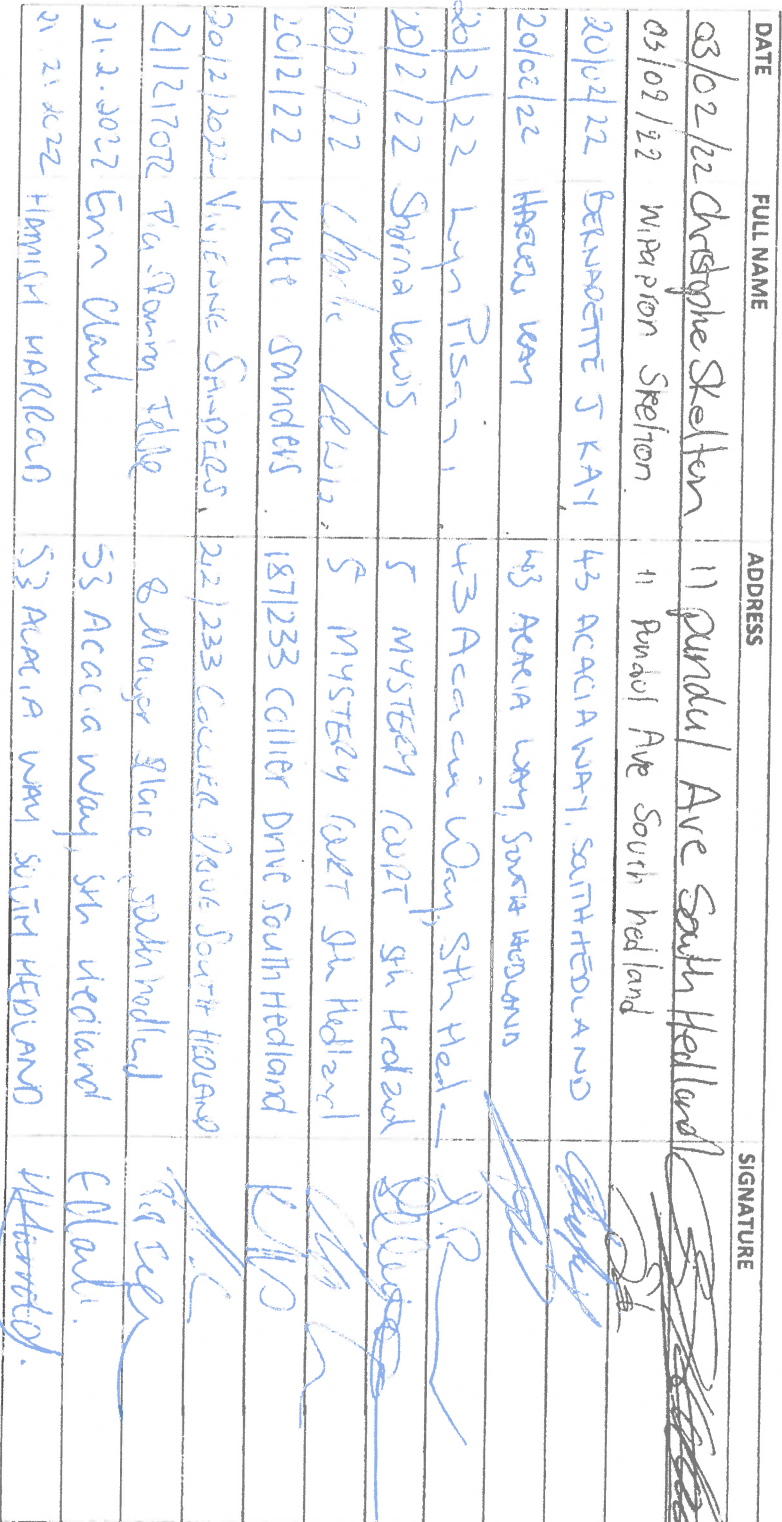 DATE FULL NAME ADDRESS SIGNATURE
03/02/22 Christophe Skelton 11 pundul Ave South Hedland
03/02/22 Wipapron Skelton 11 Pundul Ave South hedland
20/02/22 BERNADETTE J KAY 43 ACACIA WAY, SOUTH HEDLAND
20/02/22 KAY 43 ACACIA WAY, SOUTH HEDLAND
20/2/22 Lyn Pisani 43 Acacia Way, Sth Hed
20/2/22 Sharna Lewis 5 MYSTERY COURT Sth Hedland
20/2/22 Charlie Lewis 5 MYSTERY COURT Sth Hedland
20/2/22 Kate Sanders 187/233 Collier Drive South Hedland
20/2/2022 VIVIENNE SANDERS 212/233 COLLIER DRIVE SOUTH HEDLAND
21/2/2022 Pia 8 Place, South hedland
21.2.2022 Erin Clark 53 Acacia Way, Sth Hedland E Clark.
21.2.2022 HAMISH HARROLD 53 ACACIA WAY SOUTH HEDLAND HHarrold.